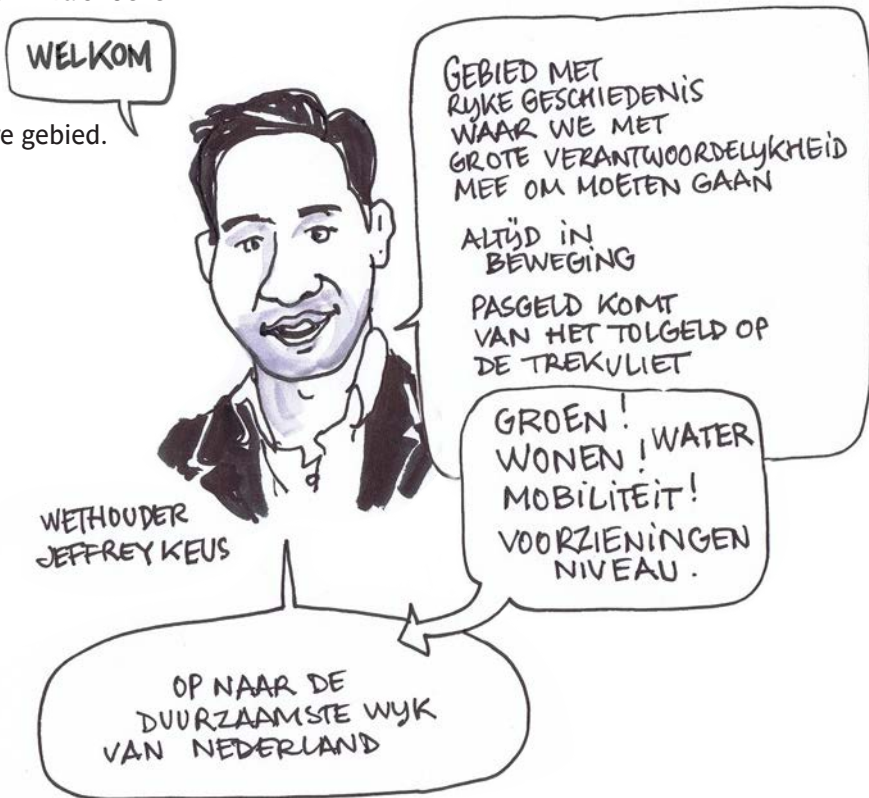 WELKOM
e gebied.
GEBIED MET
RIJKE GESCHIEDENIS
WAAR WE MET
GROTE VERANTWOORDELIJKHEID
MEE OM MOETEN GAAN
ALTIJD IN
BEWEGING
PASGELD KOMT
VAN HET TOLGELD OP
DE TREKVLIET
GROEN!
WONEN! WATER
MOBILITEIT!
VOORZIENINGEN
NIVEAU.
WETHOUDER
JEFFREY KEUS
OP NAAR DE
DUURZAAMSTE WIJK
VAN NEDERLAND